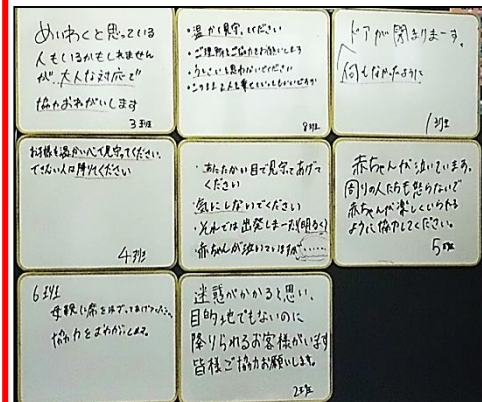 めいわくと思っている
人もいるかもしれません
が、大人な対応で
協力おねがいします
3班
・温かく見守ってください
・ご理解とご協力をお願いします
・うるさいと思わないでください
8班
ドアが閉まりまーす。
何もなかったように
1班
お客様も温かい心で見守ってください。
できない人は降りてください
4班
・あたたかい目で見守ってあげて
ください
・気にしないでください
・それでは出発しまーす(明るく)
・赤ちゃんが泣いていますが……
赤ちゃんが泣いています。
周りの人たちも怒らないで
赤ちゃんが楽しくいられる
ように協力してください。
5班
6班
母親に席をゆずってあげてください。
協力をおねがいします。
迷惑がかかると思い、
目的地でもないのに
降りられるお客様がいます
皆様ご協力お願いします。
2班